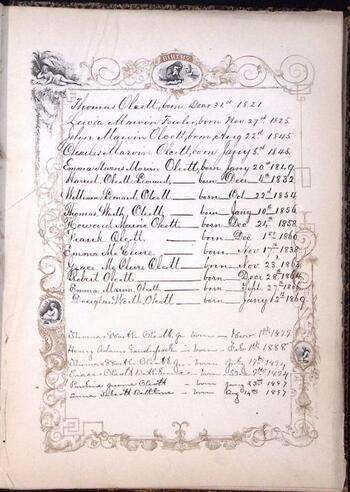 BIRTHS
Thomas Olcott, born Decr 31st 1821
Lucia Marvin Fowler, born Nov 27th 1825
John Marvin Olcott, born Aug 22d 1845
Charles Marvin Olcott, born Jany 5th 1848
Emma Stevens Marvin Olcott, born Jany 20th 1849
Harriet Olcott Leonard, born Decr 1832
William Leonard Olcott born Oct 22d 1854
Thomas Worth Olcott, born Jany 10th 1856
Howard Marvin Olcott born Dec 1858
Frank Olcott, born Dec 1st 1860
Emma McClure, born Nov 17th 1838
Grace McClure Olcott born Nov 23. 1863
Robert Olcott, born Decr 28th 1864
Emma Marvin Olcott born Sept. 27th
Douglas Worth Olcott, born Jany 12th 1869
Thomas Worth Olcott Jr born Novr 1st 1879
Henry Adams born Feb 1st 1888
Thomas Worth Olcott Jr. born 17th
Grace Olcott Rathbone born 9th 1894
Olcott born Jany 23d 1897
Anna Talcott Rathbone born Aug 14th 1897